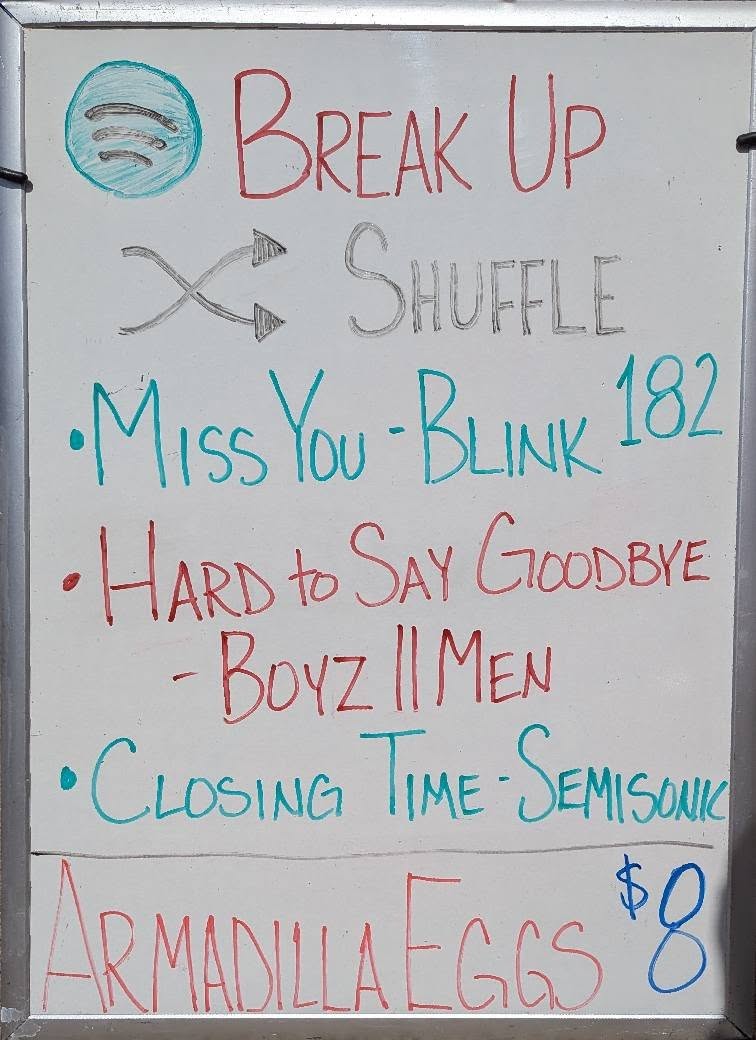 BREAK UP
SHUFFLE
• MISS YOU - BLINK 182
• HARD to SAY GOODBYE
- BOYZ II MEN
• CLOSING TIME - SEMISONIC
ARMADILLA EGGS $8